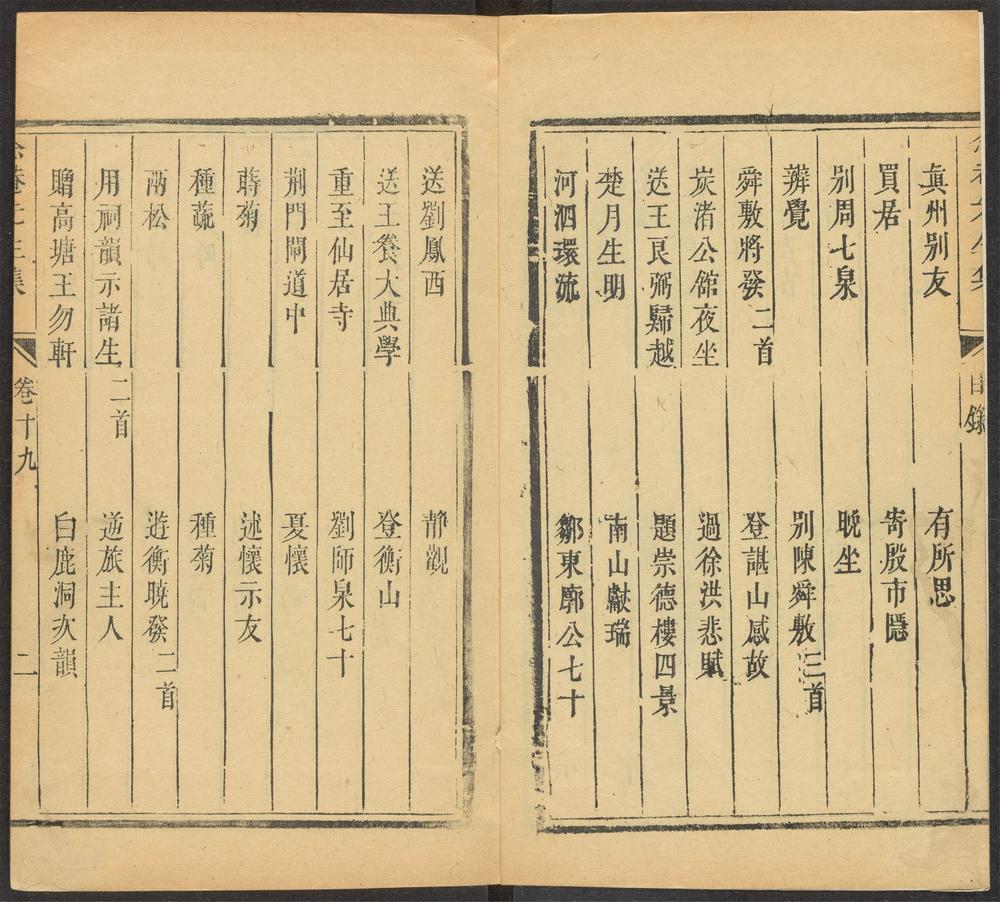 目錄
真州別友　有所思
買居　寄殷市隱
別周七泉　晚坐
辨覺　別陳舜敷三首
舜敷將發二首　登諶山感故
炭渚公館夜坐　過徐洪悲賦
送王良弼歸越　題崇德樓四景
楚月生明　南山獻瑞
河泗環流　鄒東廓公七十
送劉鳳西　靜觀
送王養大典學　登衡山
重至仙居寺　劉師泉七十
荊門閘道中　夏懷
蒔菊　述懷示友
種蔬　種菊
兩松　遊衡曉發二首
用祠韻示諸生二首　逆旅主人
贈高塘王勿軒　白鹿洞次韻
卷十九　二